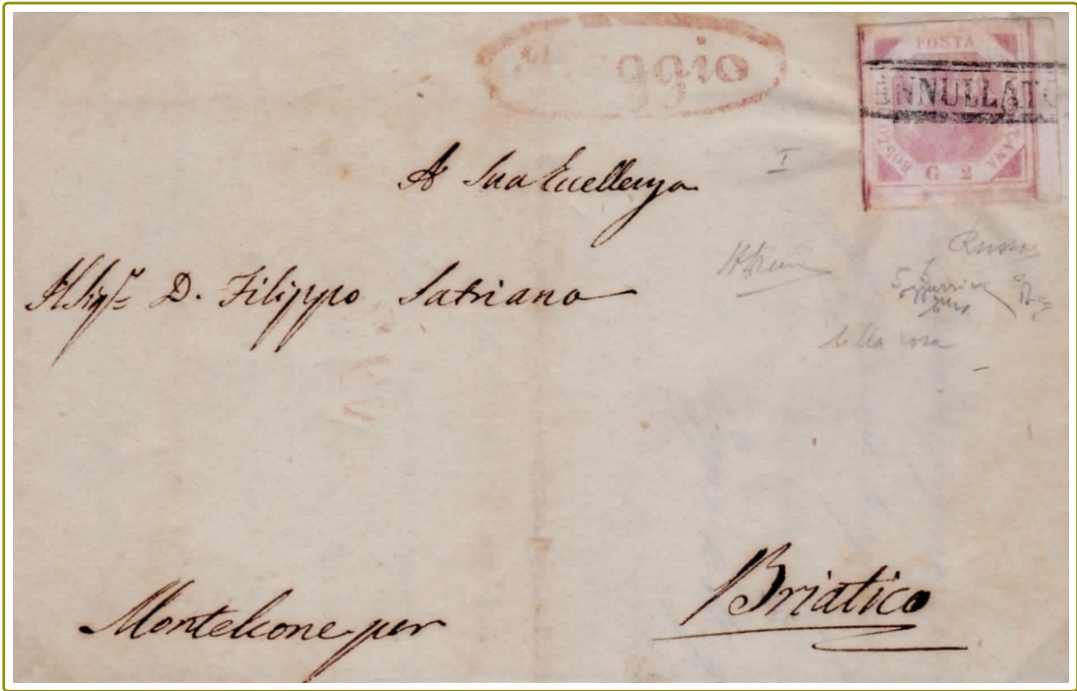 Reggio
POSTA
ANNULLATO
G 2
I
A Sua Eccellenza
Il Sigr D. Filippo Satriano
Russo
lilla rosa
Monteleone per Briatico